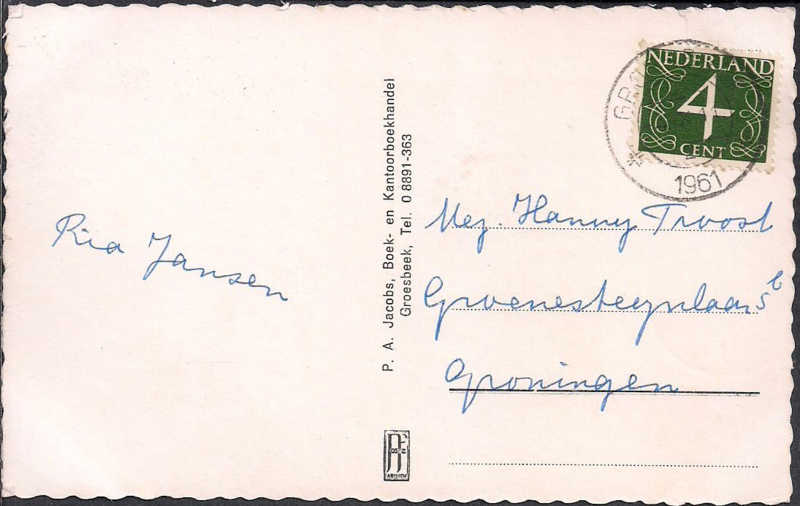 Ria Jansen
P. A. Jacobs, Boek- en Kantoorboekhandel
Groesbeek, Tel. 0 8891-363
NEDERLAND
4
CENT
1961
Mej. Hanny Troost
Groenesteynlaan 5 b
Groningen